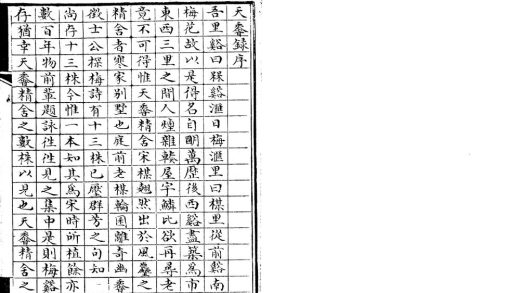 天香錄序
吾里谿曰楳谿滙曰梅滙里曰楳里從前谿南
梅花故以是得名自明萬歷後西谿盡築為市
東西三里之間人煙雜輳屋宇鱗比欲再尋老
竟不可得惟天香精舍宋楳翹然出於風塵之
精舍者寒家別墅也庭前老楳輪囷離奇幽香
徵士公探梅詩有十三株已壓群芳之句知
尚存十三株今惟一本知其爲宋時所植餘亦
數百年物前輩題詠徃徃見之集中是則梅谿
存猶幸天香精舍之數株以見也天香精舍之